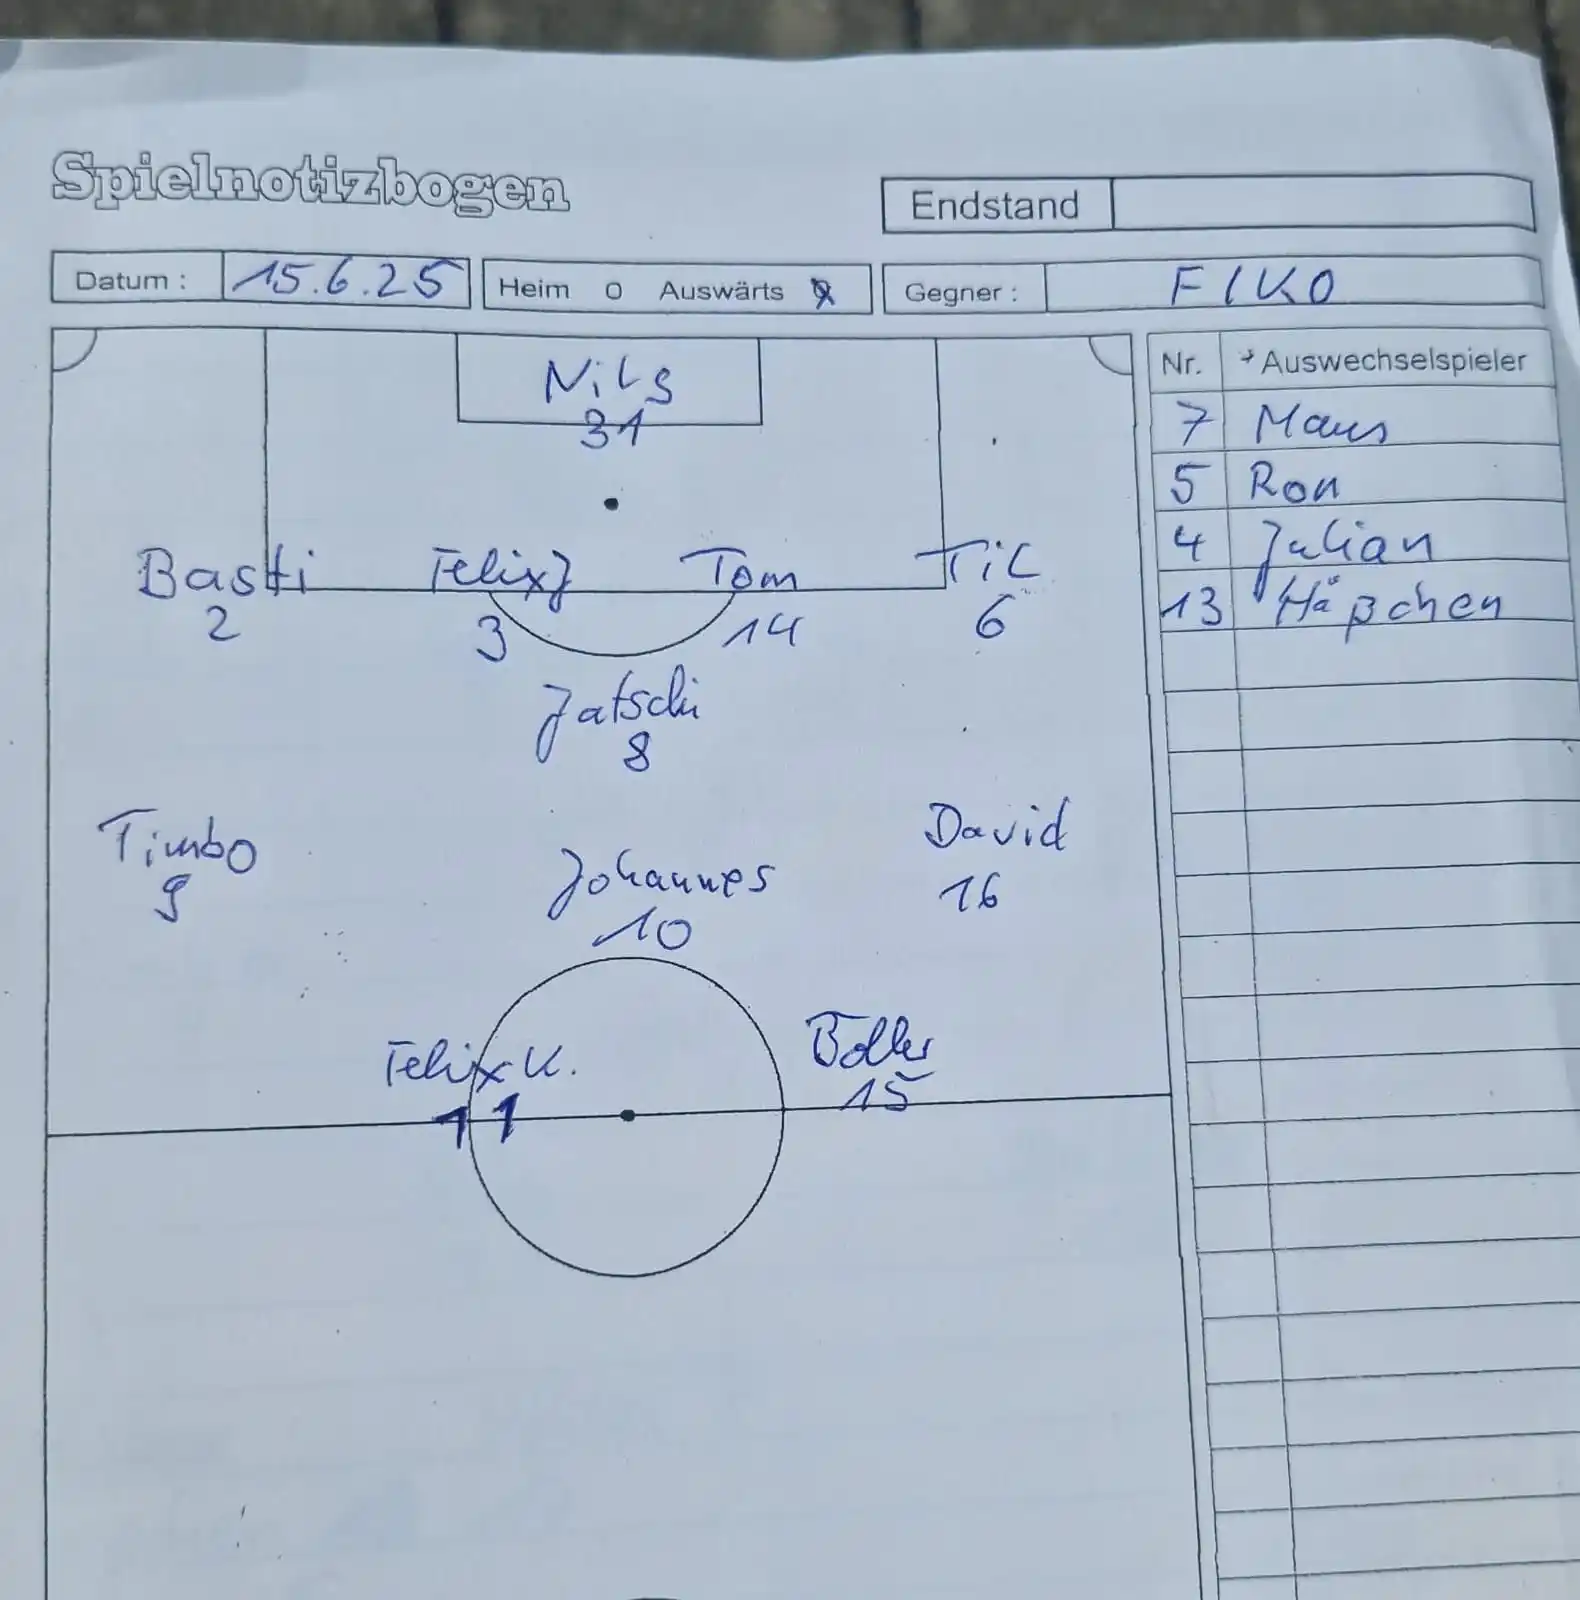 Spielnotizbogen
Endstand
Datum : 15.6.25 Heim o Auswärts Gegner : FIKO
Nr. Auswechselspieler
7 Maus
5 Ron
4 Julian
13 Häpchen
Nils
31
Basti Felix J Tom Til
2 3 14 6
Jatschi
8
Timbo Johannes David
9 10 16
Felix K. Boller
11 15